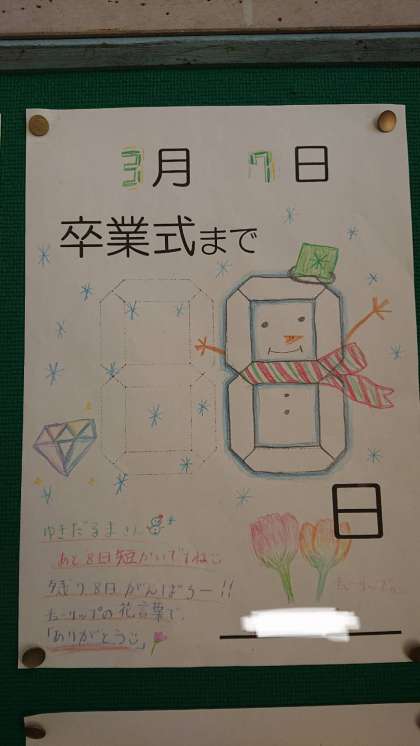 3月 7日
卒業式まで
8
日
ゆきだるまさん
あと8日短かいですね
残り8日がんばろー!!
チューリップの花言葉で、
「ありがとう」
チューリップ